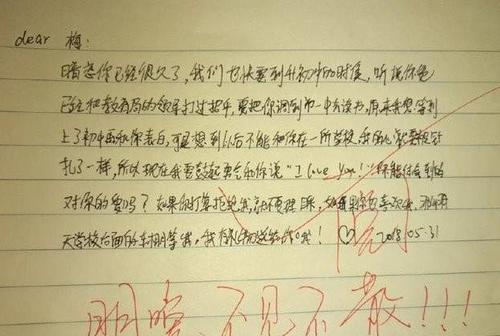 dear 梅:
暗恋你已经很久了，我们也快要到升初中的时候，听说你爸
已经和教育局的领导打过招呼，要把你调到市一中去读书，原来我想等到
上了初中再和你表白，可是想到以后不能和你在一所学校，我的心就要被针
扎了一样，所以现在我要鼓起勇气和你说"I love You!"你能体会到我
对你的爱吗？如果你打算拒绝我，就不要理睬，如果你也喜欢我，
天学校后面的车棚等我，我有礼物送给你哦！♡ 2018.05.31
阅
明晚，不见不散!!!